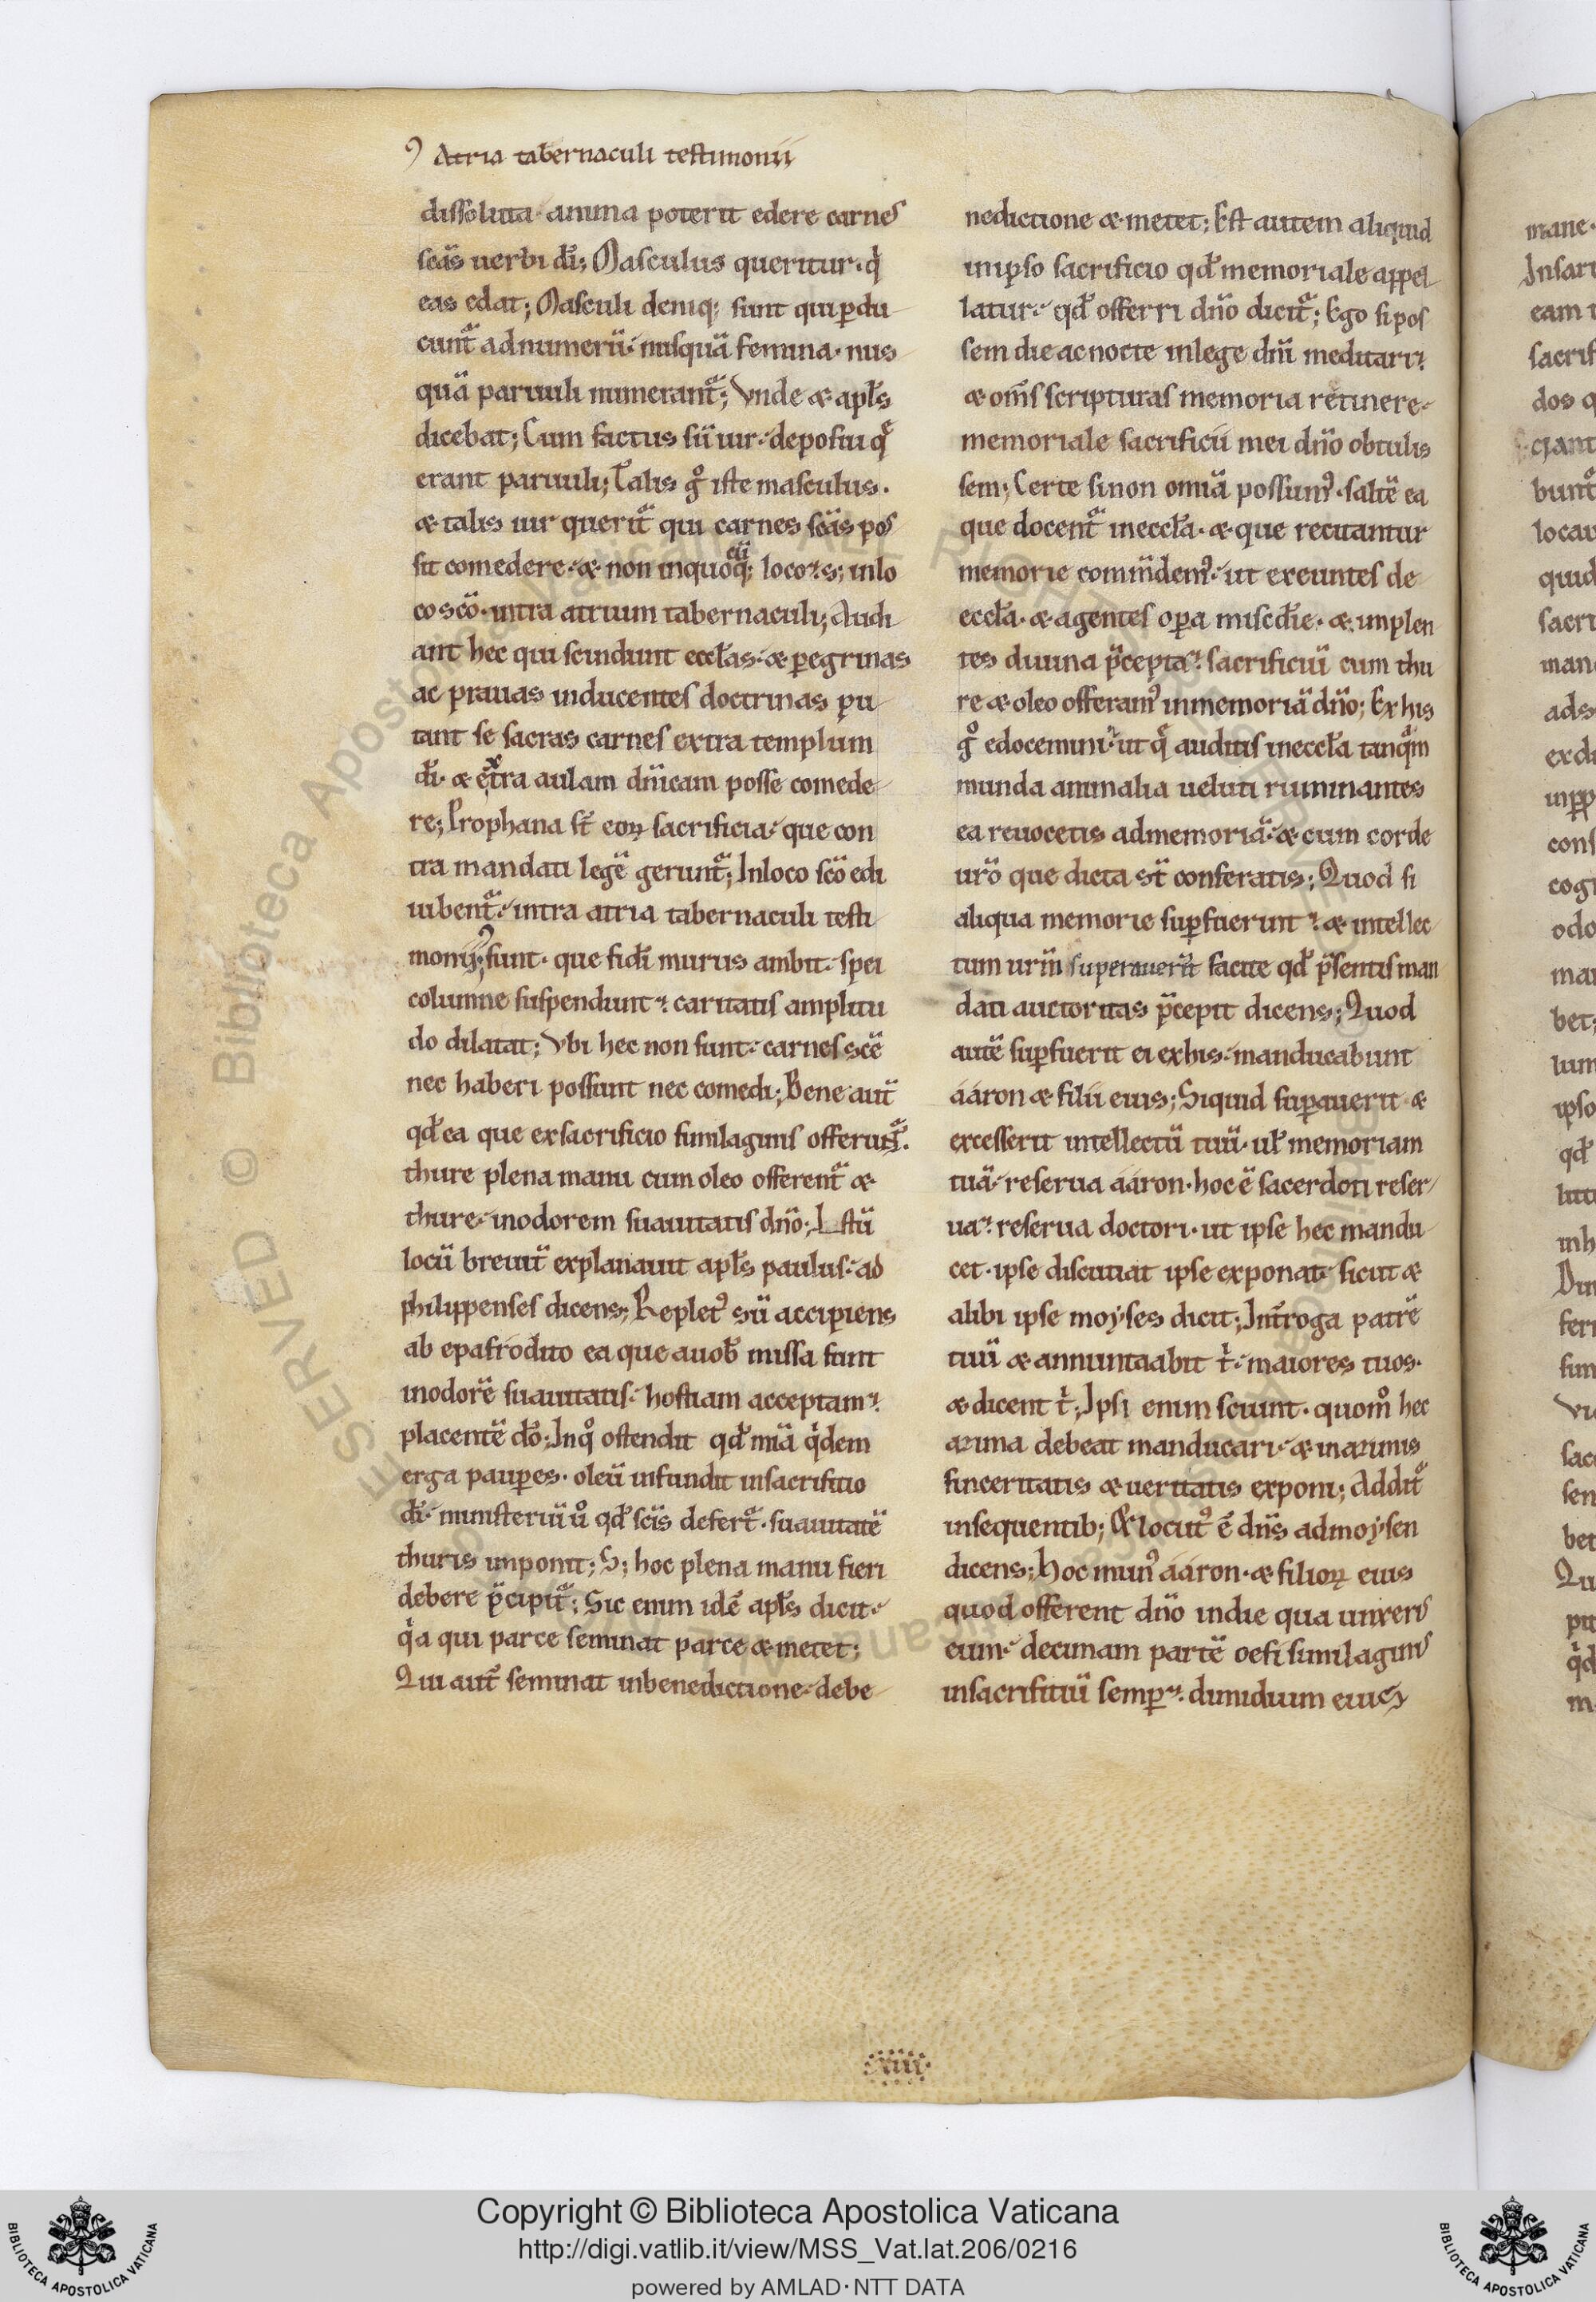 Atria tabernaculi testimonii
dissoluta· anima poterit edere carnes
sc̄as uerbi dī; Masculus queritur· q̇
eas edat; Masculi deniq; sunt qui ꝑdu
cunt᷑ ad numerū· nusquā femina· nus
quā paruuli numerant᷑; Vnde & apl̄s
dicebat; Cum factus sū uir· deposui q᷑
erant paruuli; Talis g̊ iste masculus·
& talis uir querit᷑ qui carnes sc̄as pos
sit comedere· & non in quocūq; loco· s; in lo
co sc̄o· intra atrium tabernaculi; Audi
ant hec qui scindunt eccl̄as· & ꝑegrinas
ac prauas inducentes doctrinas pu
tant se sacras carnes extra templum
dī· & extra aulam dn̄icam posse comede
re; Prophana st̄ eoꝝ sacrificia· que con
tra mandati legē gerunt᷑; In loco sc̄o edi
iubent᷑· intra atria tabernaculi testi
monij; sunt· que fidī murus ambit· spei
columne suspendunt· caritatis amplitu
do dilatat; Vbi hec non sunt· carnes scē
nec haberi possunt nec comedi; Bene aut̄
qd̄ ea que ex sacrificio similaginis offerunt᷑·
thure plena manu cum oleo offerent᷑ &
thure· in odorem suauitatis dn̄o; Istū
locū breuit̄ explanauit apl̄s paulus· ad
philippenses dicens; Replet᾽ sū accipiens
ab epafrodito ea que a uob̄ missa sunt
in odorē suauitatis· hostiam acceptam·
placentē dō; In q̊ ostendit qd̄ mīa q̇dem
erga pauꝑes· oleū infundit in sacrifitio
dī· ministeriū ů qd̄ sc̄is defert᷑· suauitatē
thuris imponit; S; hoc plena manu fieri
debere p̄cipit᷑; Sic enim idē apl̄s dicit·
q̇a qui parce seminat parce & metet;
Qui aut̄ seminat in benedictione· de be
nedictione & metet; Est autem aliquid
in ipso sacrificio qd̄ memoriale appel
latur· qd̄ offerri dn̄o dicit᷑; Ego si pos
sem die ac nocte in lege dn̄i meditari·
& om̄s scripturas memoria retinere·
memoriale sacrificii mei dn̄o obtulis
sem; Certe si non omīa possum᾽· saltē ea
que docent᷑ in eccl̄a· & que recitantur
memorie comm̄dem᾽· ut exeuntes de
eccl̄a· & agentes oꝑa misc̄die· & implen
tes diuina p̄cepta· sacrificiū cum thu
re & oleo offeram᾽ in memoriā dn̄o; Ex his
g̊ edocemini· ut q᷑ auditis in eccl̄a tanq᷑m
munda animalia ueluti ruminantes
ea reuocetis ad memoriā· & cum corde
ur̄o que dicta st̄ conferatis; Quod si
aliqua memorie suꝑfuerint· & intellec
tum ur̄m superauerīt facite qd̄ p̄sentis man
dati auctoritas p̄cepit dicens; Quod
autē suꝑfuerit ei ex his· manducabunt
aáron & filii eius; Siquid suꝑauerit &
excesserit intellectū tuū· ul̄ memoriam
tuā· reserua aáron· hoc ē sacerdoti reser
ua· reserua doctori· ut ipse hec mandu
cet· ipse discutiat ipse exponat· sicut &
alibi ipse moyses dicit; Int̄roga patrē
tuū & annuntiabit ṫ· maiores tuos·
& dicent ṫ; Ipsi enim sciunt· quom̊ hec
azima debeat manducari· & in azimis
sinceritatis & ueritatis exponi; Addit᷑
in sequentib; Et locut᾽ ē dn̄s ad moysen
dicens; Hoc mun᾽ aáron· & filioꝝ eius
quod offerent dn̄o in die qua unxeris
eum· decimam partē oefi similaginis
in sacrifitiū semꝑ· dimidium eius
·xiiii·
Copyright © Biblioteca Apostolica Vaticana
http://digi.vatlib.it/view/MSS_Vat.lat.206/0216
powered by AMLAD·NTT DATA
BIBLIOTECA APOSTOLICA VATICANA
BIBLIOTECA APOSTOLICA VATICANA